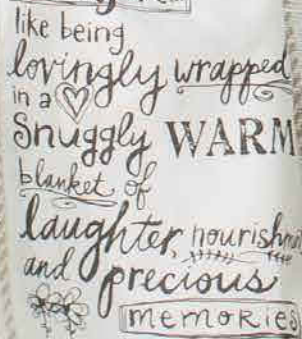 like being
lovingly wrapped
in a
Snuggly WARM
blanket of
laughter,
and precious
memories